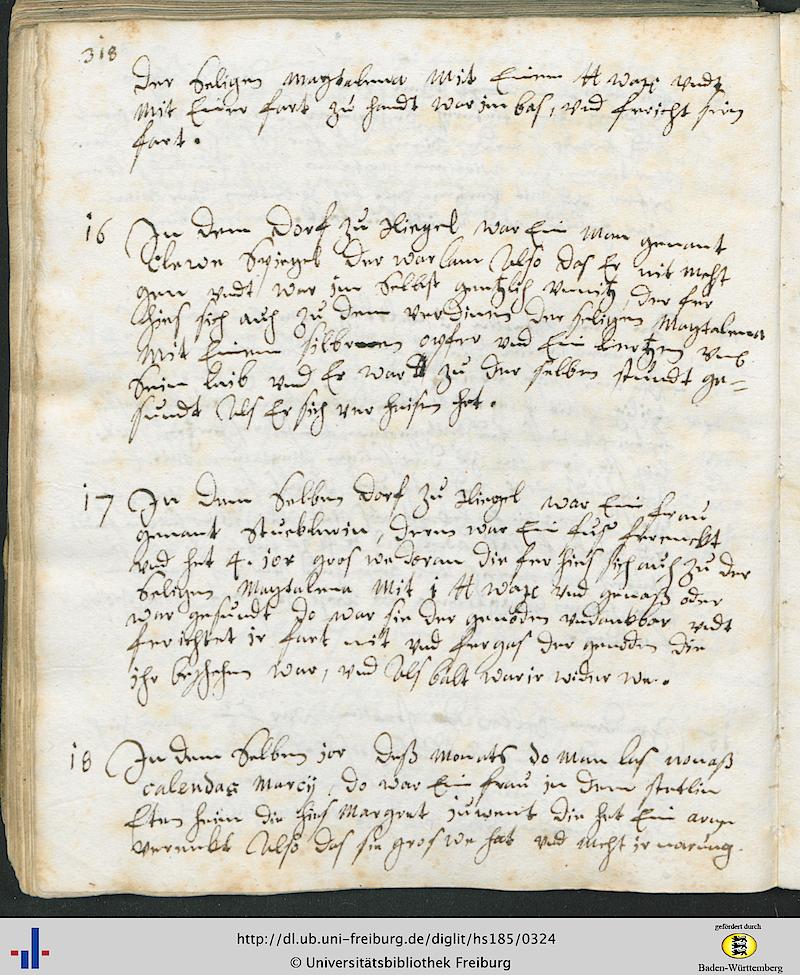 318
der Seligen Magtalena Mit Einem ℔ wax vndt
Mit Einer fart zu handt war im bas, vnd fericht sein
fart.
16 In dem Dorf zu Riegel war Ein Man genant
Clewe Spiegel der war lam Also das Er nit meht
gen vndt war im Selbst gentzlich vnnitz, der fer
hies sich auch zu dem verdinen der heligen Magtalena
Mit Einem silbrenen opfer vnd Ein kertzen vmb
Sein laib vnd Er wardt zu der selben stundt ge=
sundt Als Er sich ver heisen het.
17 In dem Selben Dorf zu Riegel war Ein frau
genant Stuecklerin, deren war Ein fuß ferenckt
vnd het 4. jor gros we doran die fer hies sich auch zu der
Seligen Magtalena Mit j ℔ wax vnd genaß oder
war gesundt do war sie der genoden vndanckbar vndt
ferichtet ir fart nit vnd fergas der genoden die
ihr beschehen war, vnd Als balt war ir wider we.
18 In dem Selben jor deß Monats do Man las
calendas Marcij, do war Ein frau in dem stetlin
Eten heim die hies Margret die het Ein arm
verenckt Also das sie gros we hat vnd meht ir narung.
http://dl.ub.uni-freiburg.de/diglit/hs185/0324
© Universitätsbibliothek Freiburg
gefördert durch
Baden-Württemberg